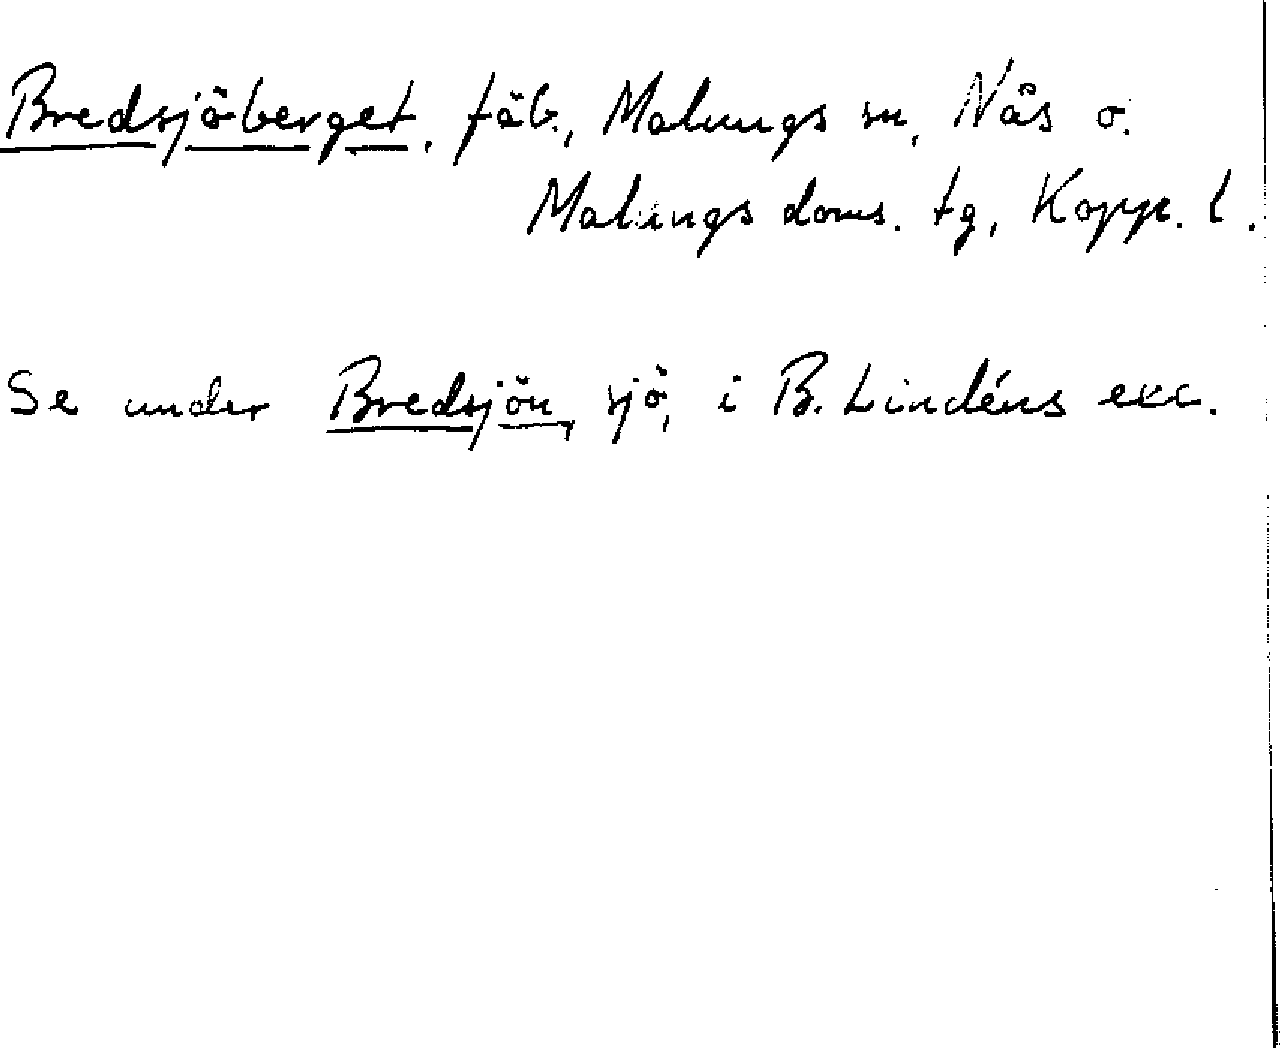 Bredsjöberget, fäb., Malungs sn, Nås o.
Malungs doms. tg, Kopp. l.
Se under Bredsjön, sjö, i B. Lindéns exc.